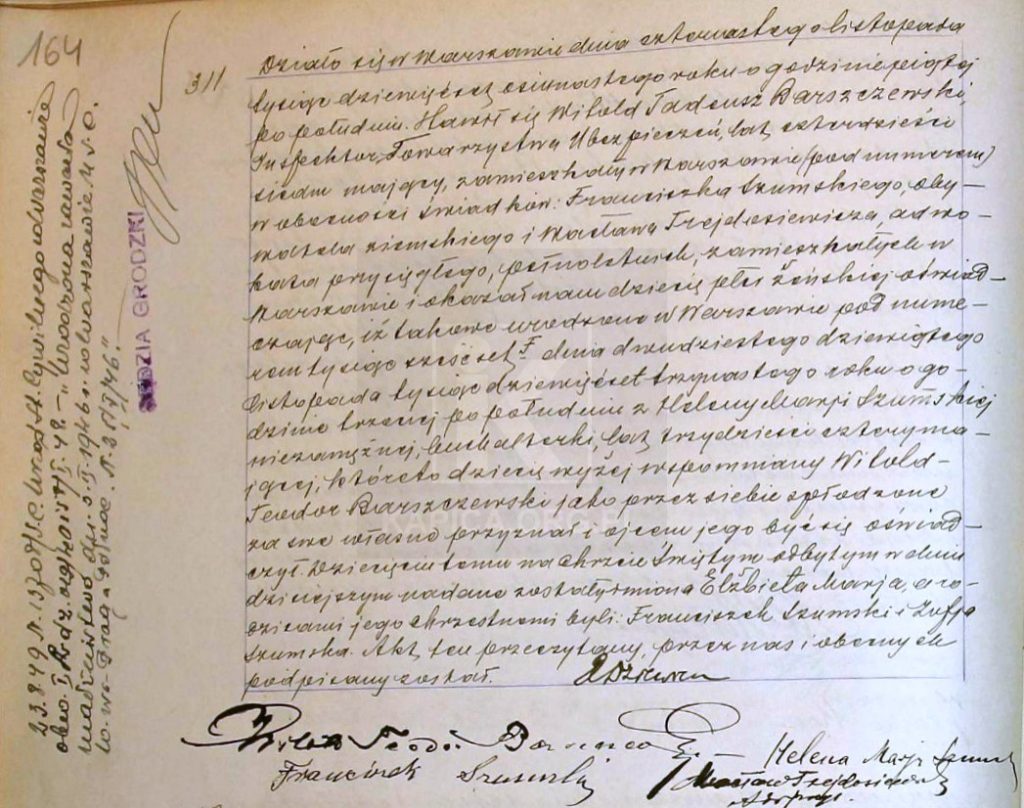 164
311
Działo się w Warszawie dnia czternastego listopada
tysiąc dziewięćset osiemnastego roku o godzinie piątej
po południu. Stawił się Witold Tadeusz Barszczewski,
Inspektor Towarzystwa Ubezpieczeń, lat czterdzieści
siedm mający, zamieszkały w Warszawie (pod numerem)
w obecności świadków: Franciszka Szumskiego, oby-
watela ziemskiego i Wacława Trejdosiewicza, adwo-
kata przysięgłego, pełnoletnich, zamieszkałych w
Warszawie i okazał nam dziecię płci żeńskiej oświad-
czając, iż takowe urodzone w Warszawie pod nume-
rem tysiąc sześćset dnia dwudziestego dziewiątego
listopada tysiąc dziewięćset trzynastego roku o go-
dzinie trzeciej po południu z Heleny Marji Szumskiej
niezamężnej, buchalterki, lat trzydzieści cztery ma-
jącej, któreto dziecię wyżej wspomniany Witold-
Teodor Barszczewski jako przez siebie spłodzone
za swe własne przyznał i ojcem jego być się oświad-
czył. Dziecięciu temu na Chrzcie Świętym odbytym w dniu
dzisiejszym nadane zostały imiona Elżbieta Marja, a ro-
dzicami jego chrzestnemi byli: Franciszek Szumski i Zofja
Szumska. Akt ten przeczytany, przez nas i obecnych
podpisany został.
Witold Teodor
Franciszek Szumski
Helena Marja
Wacław Trejdosiewicz
SĘDZIA GRODZKI